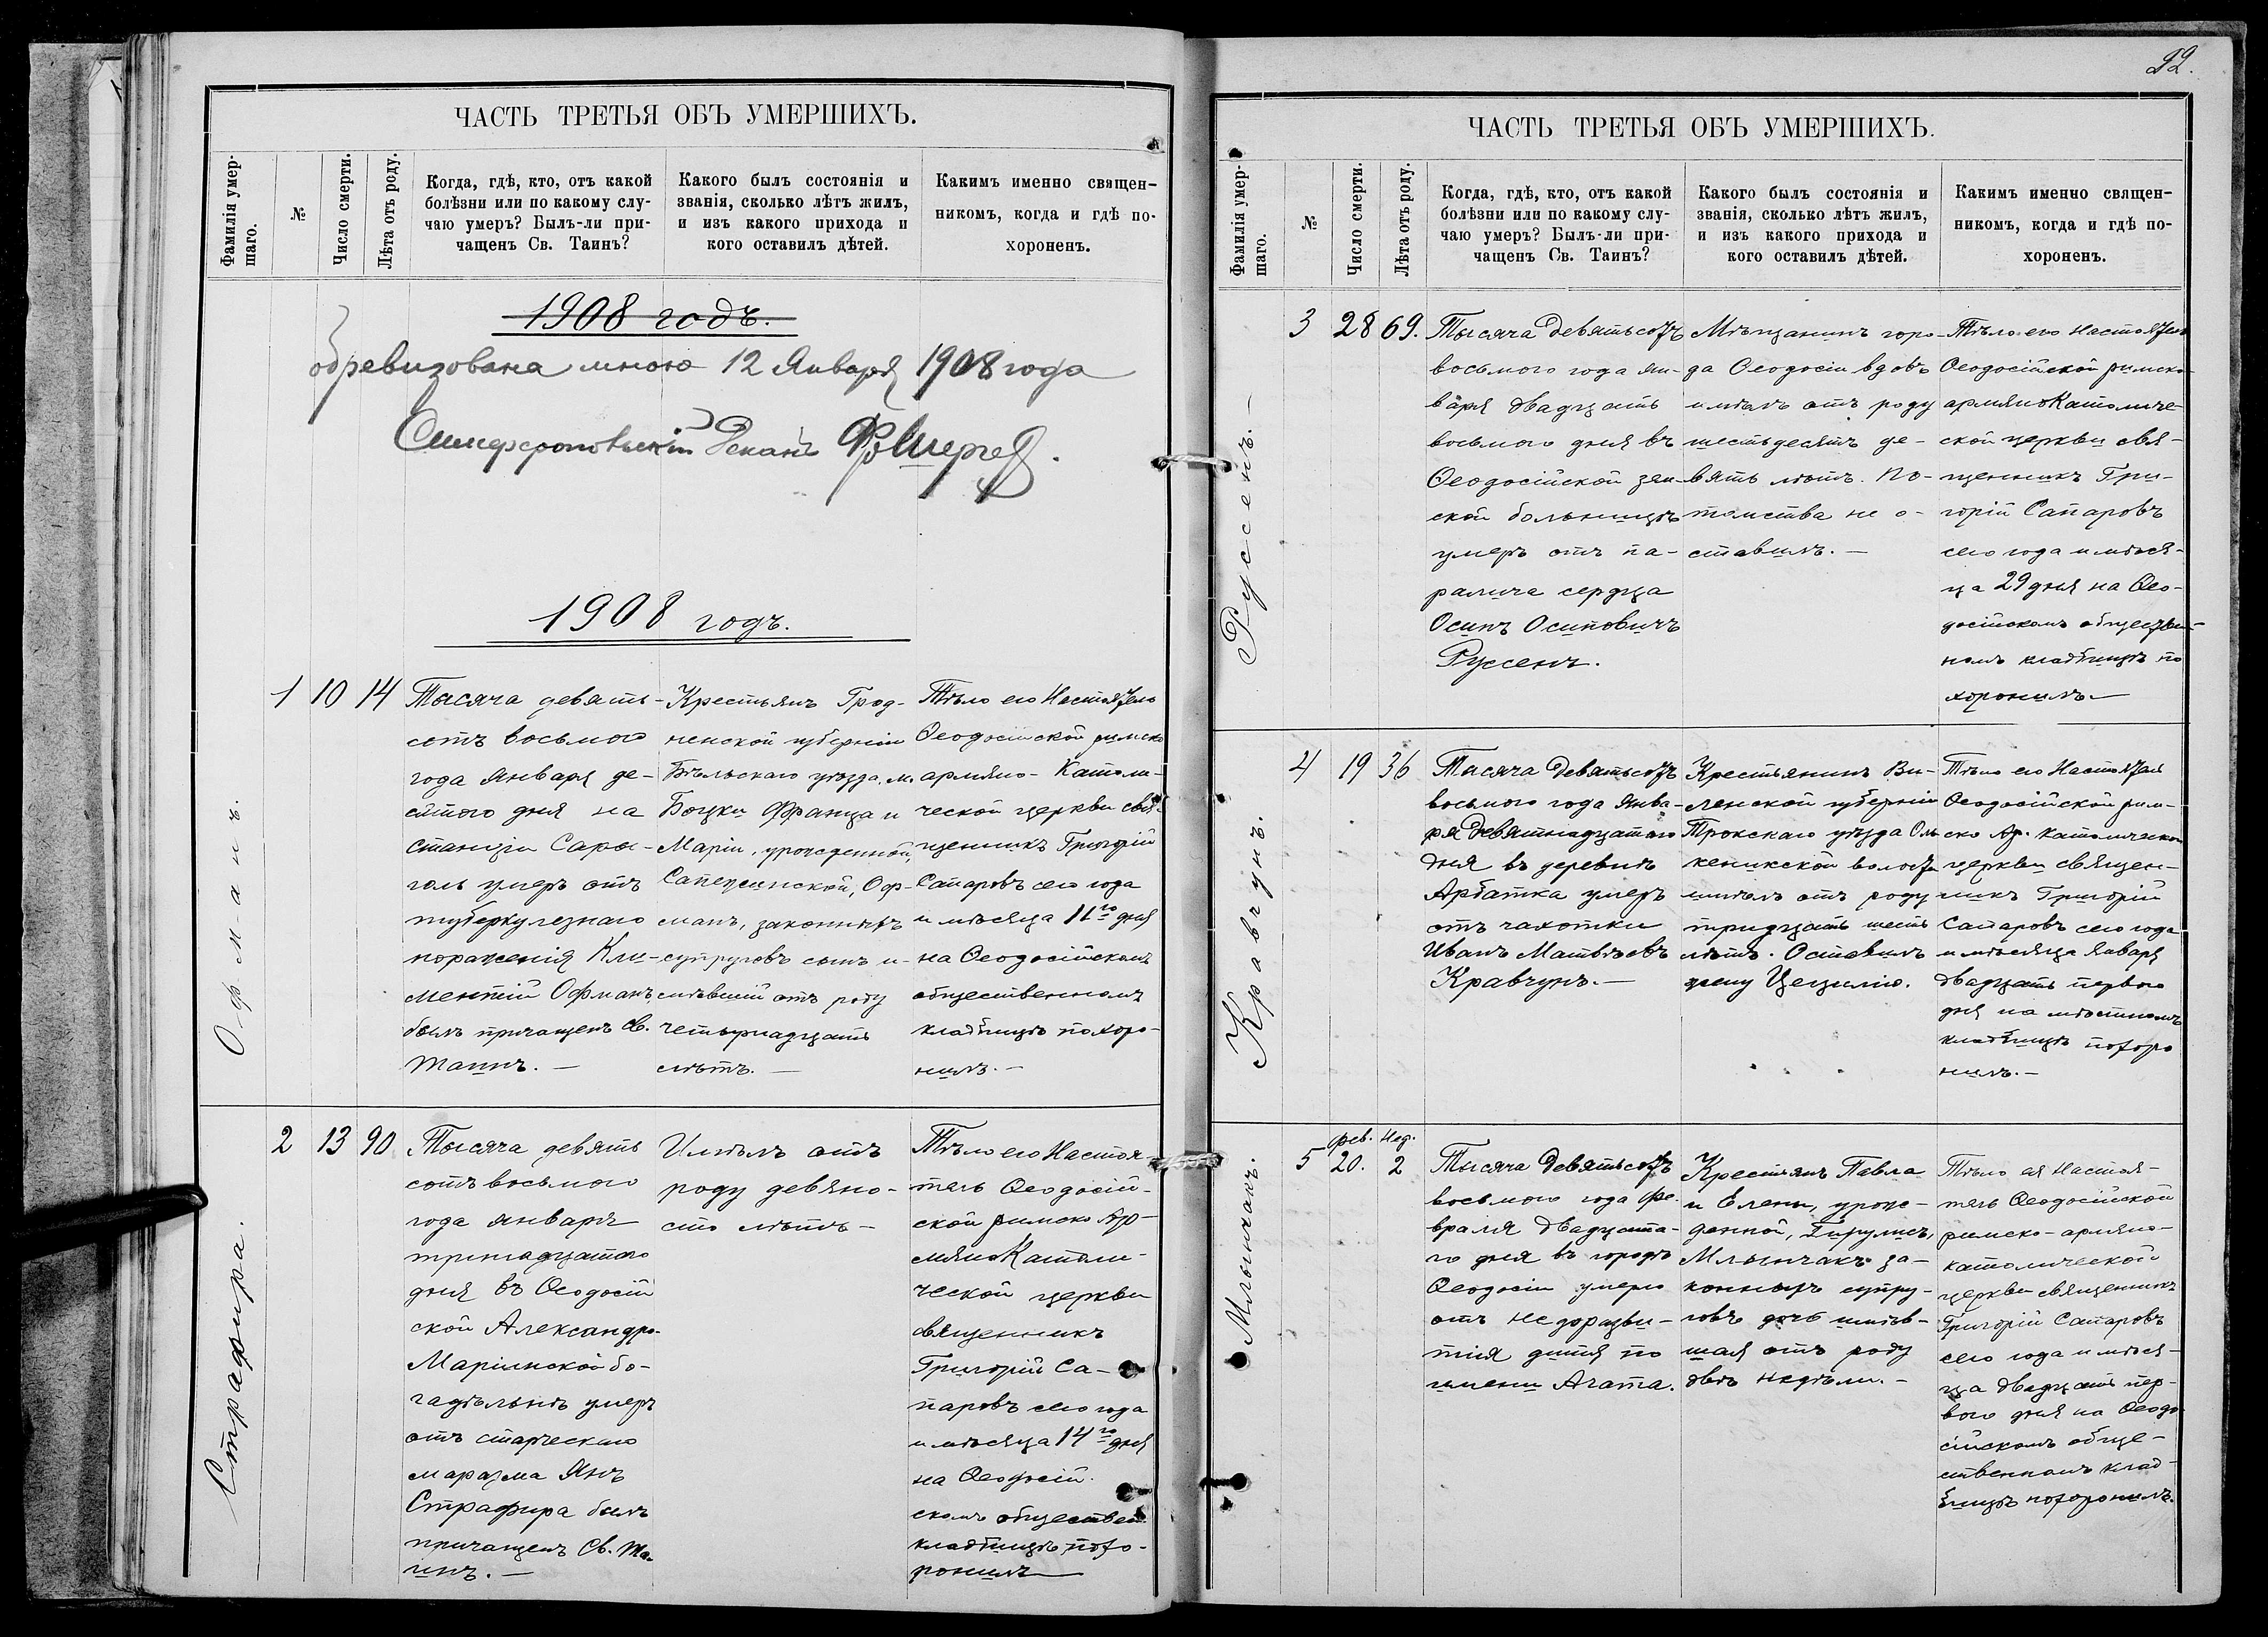 ЧАСТЬ ТРЕТЬЯ ОБЪ УМЕРШИХЪ.
Фамилія умер-
шаго.
№
Число смерти.
Лѣта отъ роду.
Когда, гдѣ, кто, отъ какой
болѣзни или по какому слу-
чаю умеръ? Былъ-ли при-
чащенъ Св. Таинъ?
Какого былъ состоянія и
званія, сколько лѣтъ жилъ,
и изъ какого прихода и
кого оставилъ дѣтей.
Какимъ именно священ-
никомъ, когда и гдѣ по-
хороненъ.
1908 годъ.
обревизована мною 12 Января 1908 года
Симферопольскій Деканъ
1908 годъ.
Офманъ.
1 10 14
Тысяча девять-
сотъ восьмого
года Января де-
сятого дня на
станціи Сары-
голь умеръ отъ
туберкулезнаго
пораженія Кли-
ментій Офманъ,
былъ причащенъ Св.
Таинъ. —
Крестьянъ Грод-
ненской губерніи
Бѣльскаго уѣзда, м.
Боцки Франца и
Маріи, урожденной,
Офманъ, законныхъ
супруговъ сынъ и-
мѣвшій отъ роду
четырнадцать
лѣтъ. —
Тѣло его Настоятель
Ѳеодосійской римско
армяно-Католи-
ческой церкви свя-
щенникъ Григорій
Сапаровъ сего года
и мѣсяца 11го дня
на Ѳеодосійскомъ
общественномъ
кладбищѣ похоро-
нилъ. —
Страфира.
2 13 90
Тысяча девять
сотъ восьмого
года января
тринадцатого
дня въ Ѳеодосій
ской Александро-
Маріинской бо-
гадѣльнѣ умеръ
отъ старческаго
маразма Янъ
Страфира былъ
причащенъ Св. Та-
инъ. —
Имѣлъ отъ
роду девяно-
сто лѣтъ —
Тѣло его Настоя
тель Ѳеодосій-
ской римско Ар-
мяно Католи-
ческой церкви
священникъ
Григорій Са-
паровъ сего года
и мѣсяца 14го дня
на Ѳеодосій-
скомъ обществен.
кладбищѣ похо-
ронилъ
92.
ЧАСТЬ ТРЕТЬЯ ОБЪ УМЕРШИХЪ.
Фамилія умер-
шаго.
№
Число смерти.
Лѣта отъ роду.
Когда, гдѣ, кто, отъ какой
болѣзни или по какому слу-
чаю умеръ? Былъ-ли при-
чащенъ Св. Таинъ?
Какого былъ состоянія и
званія, сколько лѣтъ жилъ,
и изъ какого прихода и
кого оставилъ дѣтей.
Какимъ именно священ-
никомъ, когда и гдѣ по-
хороненъ.
Руссенъ. —
3 28 69.
Тысяча девятьсотъ
восьмого года ян-
варя двадцать
восьмого дня въ
Ѳеодосійской зем-
ской больницѣ
умеръ отъ па-
ралича сердца
Осипъ Осиповичъ
Руссенъ.
Мѣщанинъ горо-
да Ѳеодосіи вдовъ
имѣлъ отъ роду
шестьдесятъ де-
вять лѣтъ. По-
томства не о-
ставилъ. —
Тѣло его Настоятель
Ѳеодосійской римско
армяно Католиче-
ской церкви свя-
щенникъ Гри-
горій Сапаровъ
сего года и мѣся-
ца 29 дня на Ѳео-
досійскомъ обществен-
номъ кладбищѣ по
хоронилъ —
Кравчунъ.
4 19 36
Тысяча девятьсотъ
восьмого года Янва-
ря девятнадцатого
дня въ деревнѣ
Арбатка умеръ
отъ чахотки
Иванъ Матвѣевъ
Кравчунъ. —
Крестьянинъ Ви-
ленской губерніи
Трокскаго уѣзда Оль
кеникской волости
имѣлъ отъ роду
тридцать шесть
лѣтъ. Оставилъ
жену Цецилію.
Тѣло его Настоятель
Ѳеодосійской рим-
ско Ар. католической
церкви священ-
никъ Григорій
Сапаровъ сего года
и мѣсяца Января
двадцать первого
дня на мѣстномъ
кладбищѣ похоро
нилъ. —
Млынчакъ.
фев. Нед.
5 20. 2
Тысяча девятьсотъ
восьмого года фе-
враля двадцата-
го дня въ городѣ
Ѳеодосіи умерло
отъ недоразви-
тія дитя по
имени Агата.
Крестьянъ Павла
и Елены, урож-
денной,
Млынчакъ за-
конныхъ супру-
говъ дочь имѣв-
шая отъ роду
двѣ недѣли. —
Тѣло ея Настоя-
тель Ѳеодосійской
римско-армяно-
католической
церкви священникъ
Григорій Сапаровъ
сего года и мѣся-
ца двадцать пер-
вого дня на Ѳеодо
сійскомъ обще-
ственномъ клад-
бищѣ похоронилъ.